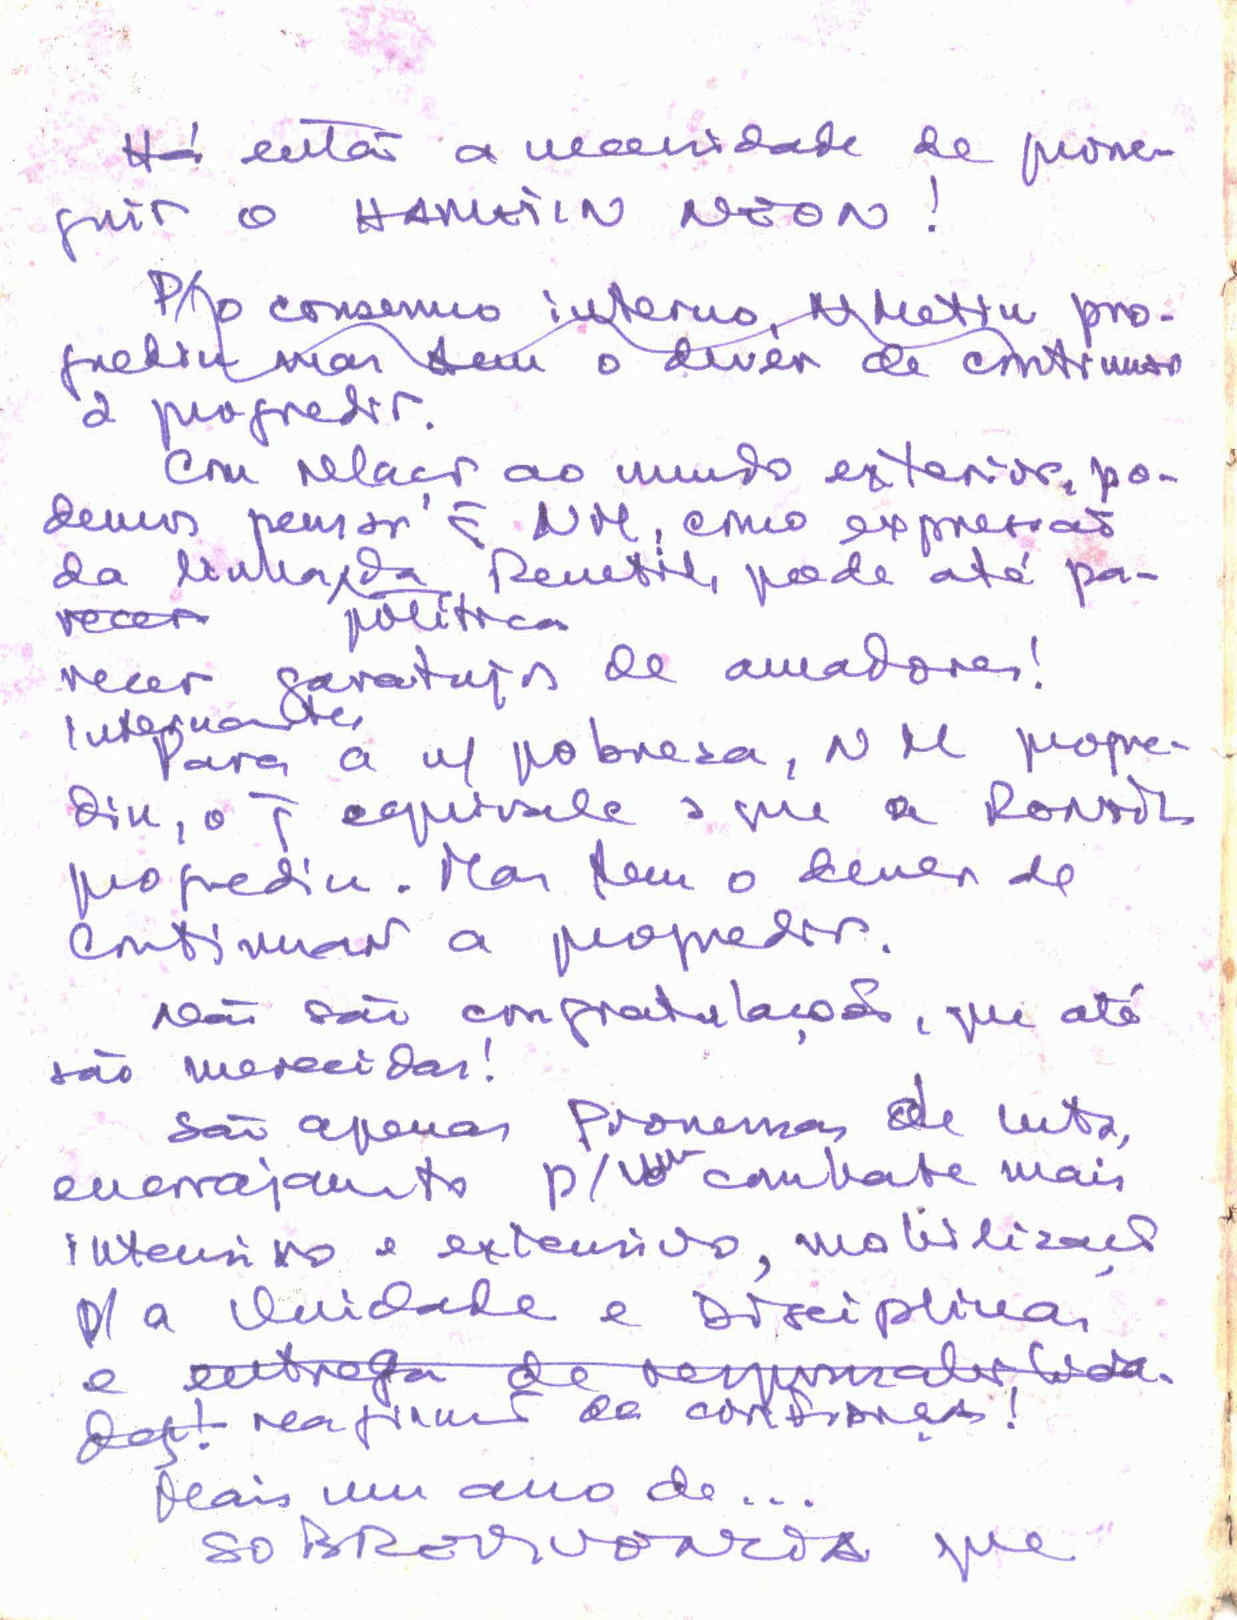 Há então a necessidade de prosse-
guir o HAMETIN NEON!
P/o consenso interno, N Metin pro-
grediu mas tem o dever de continuar
a progredir.
Com relação ao mundo exterior, po-
demos pensar q̃ NM, como expressão
da linha da Renetil, pode até pa-
recer política
recer garatujas de amadores!
Internamente
Para a n/ pobreza, NM progre-
diu, o q̃ equivale a que a Renetil
progrediu. Mas tem o dever de
continuar a progredir.
Não são congratulações, que até
são merecidas!
São apenas promessas de luta,
encorajamento p/ um combate mais
intensivo e extensivo, mobilização
p/ a Unidade e Disciplina,
e entrega de responsabilida-
des! reafirmação da confiança!
Mais um ano de...
SOBREVIVÊNCIA que